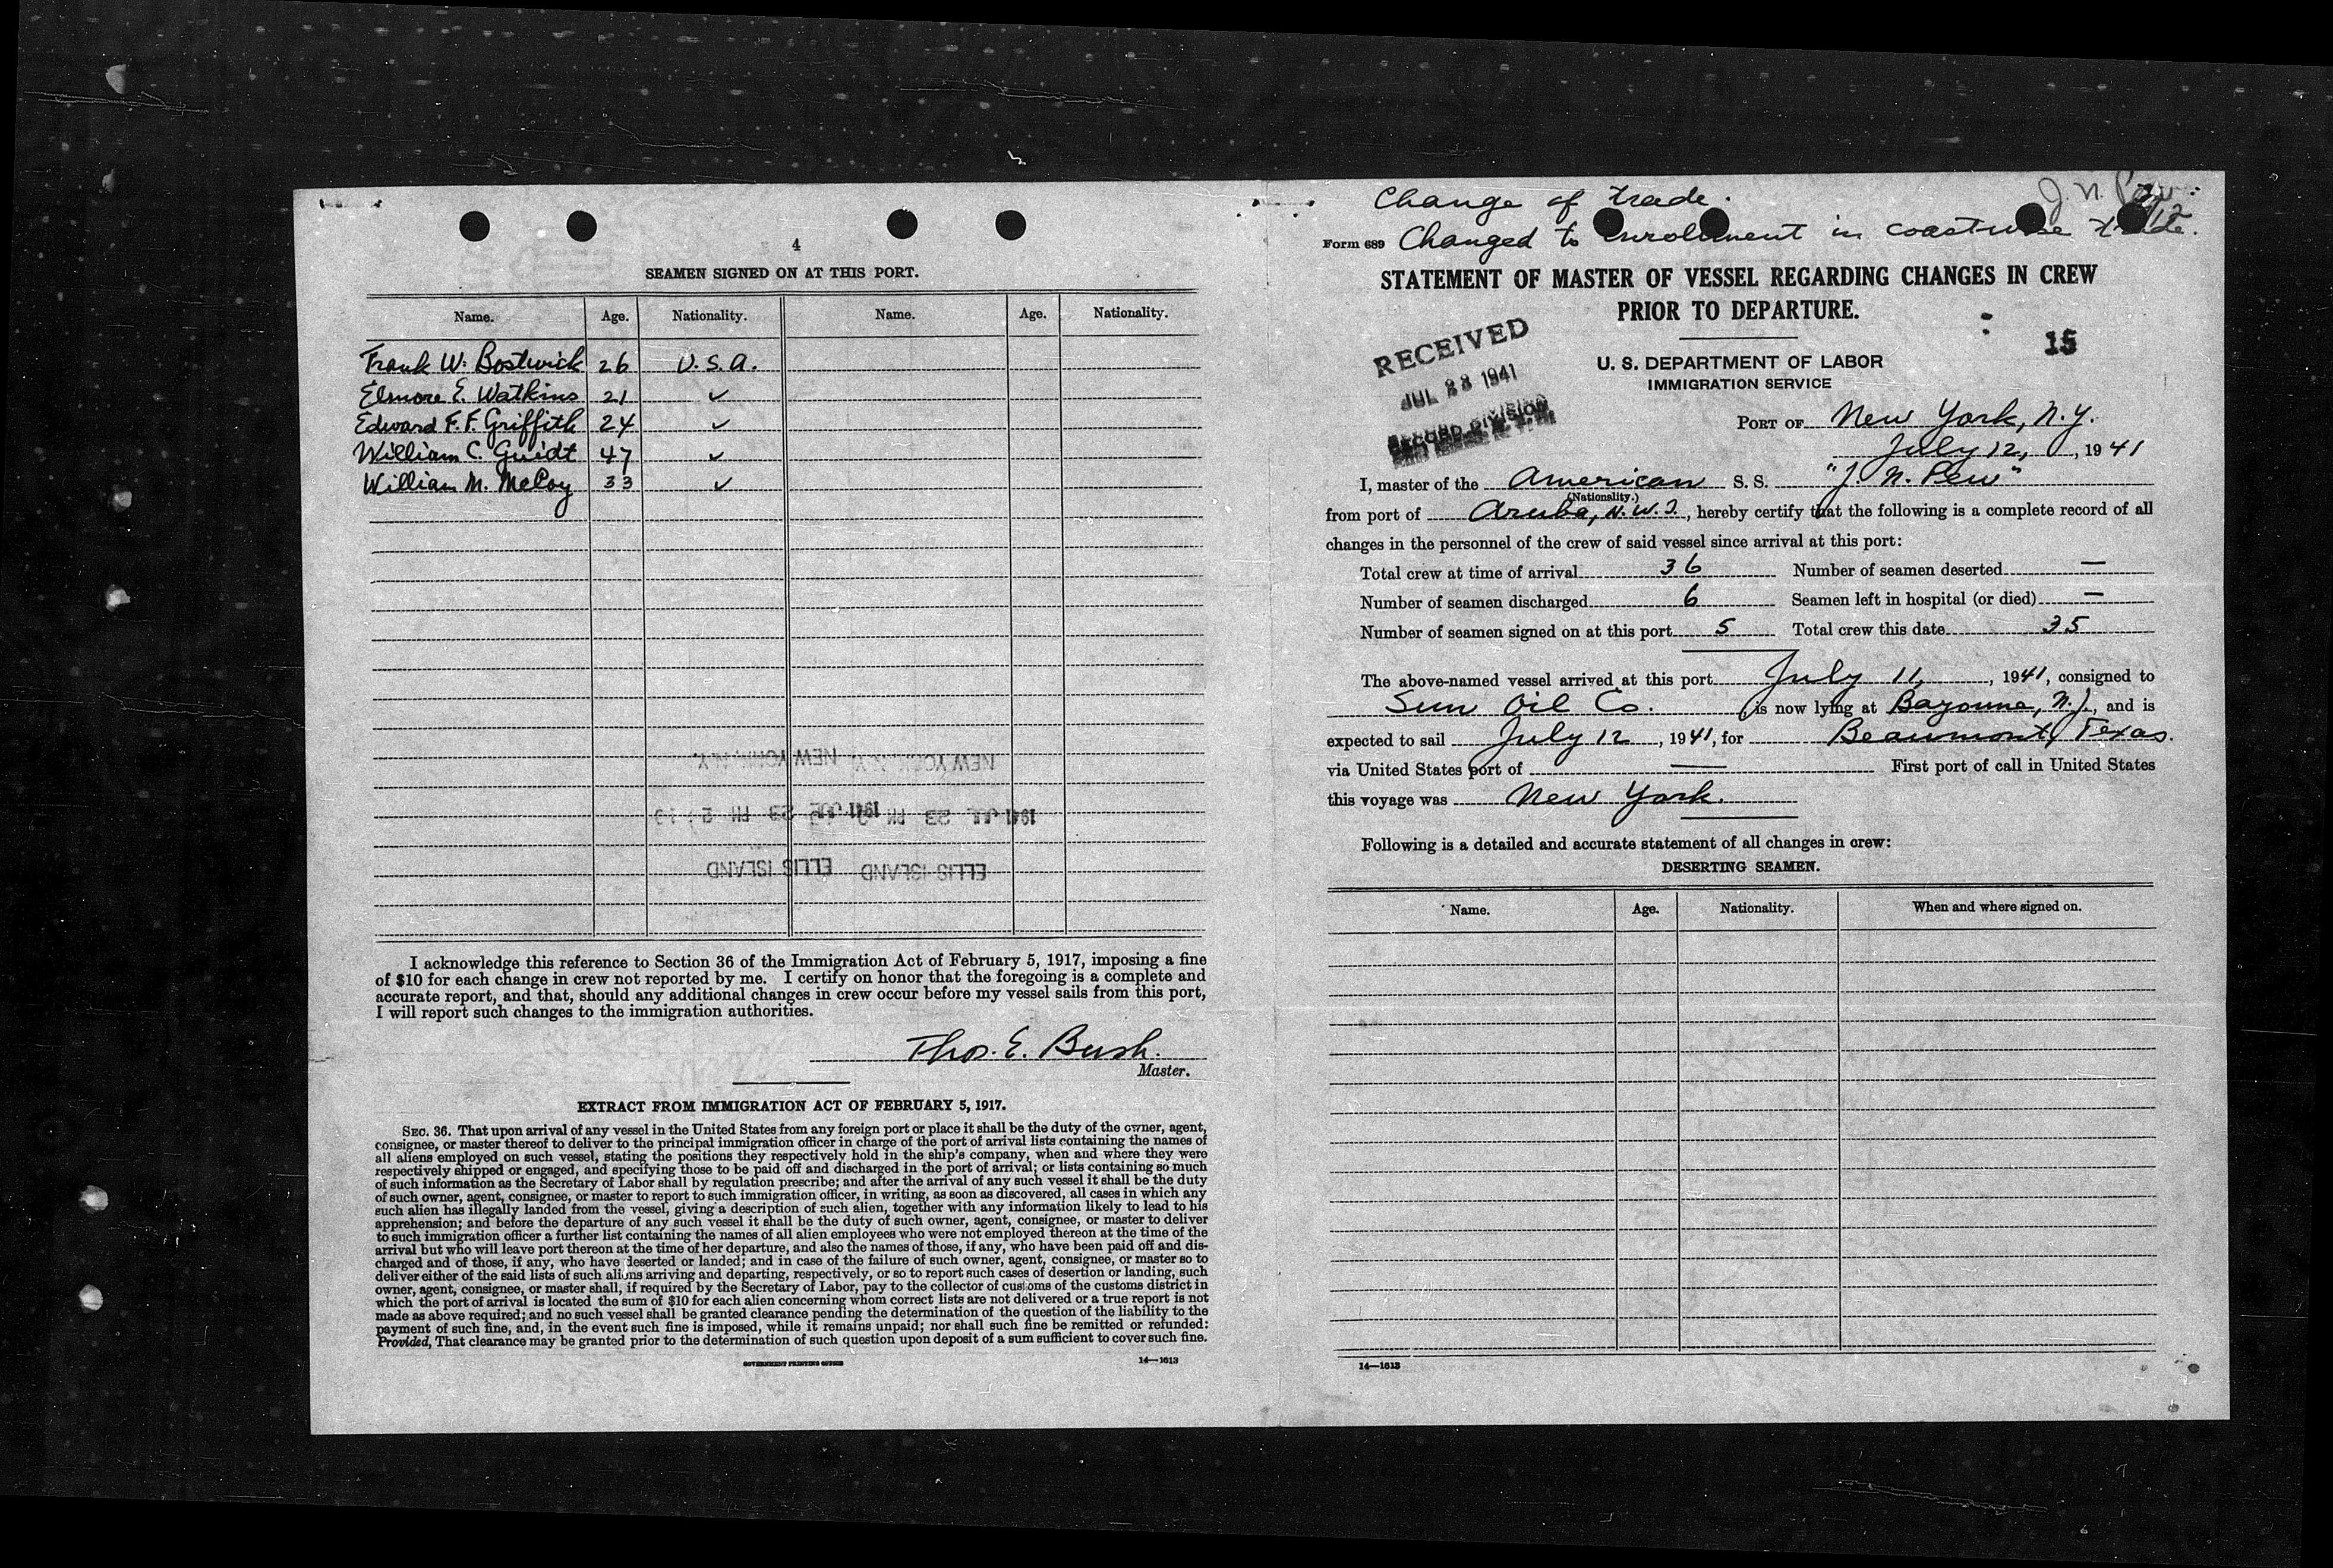 4
SEAMEN SIGNED ON AT THIS PORT.
Name. Age. Nationality. Name. Age. Nationality.
Frank W. Bostwick 26 U.S.A.
Elmore E. Watkins 21 ✓
Edward F. F. Griffith 24 ✓
William C. Guidt 47 ✓
William M. McCoy 33 ✓
NEW YORK N.Y. NEW YORK N.Y.
1941 JUL 23 PM 1941 JUL 23 PM
ELLIS ISLAND ELLIS ISLAND
I acknowledge this reference to Section 36 of the Immigration Act of February 5, 1917, imposing a fine
of $10 for each change in crew not reported by me. I certify on honor that the foregoing is a complete and
accurate report, and that, should any additional changes in crew occur before my vessel sails from this port,
I will report such changes to the immigration authorities.
Thos. E. Bush.
Master.
EXTRACT FROM IMMIGRATION ACT OF FEBRUARY 5, 1917.
SEC. 36. That upon arrival of any vessel in the United States from any foreign port or place it shall be the duty of the owner, agent,
consignee, or master thereof to deliver to the principal immigration officer in charge of the port of arrival lists containing the names of
all aliens employed on such vessel, stating the positions they respectively hold in the ship's company, when and where they were
respectively shipped or engaged, and specifying those to be paid off and discharged in the port of arrival; or lists containing so much
of such information as the Secretary of Labor shall by regulation prescribe; and after the arrival of any such vessel it shall be the duty
of such owner, agent, consignee, or master to report to such immigration officer, in writing, as soon as discovered, all cases in which any
such alien has illegally landed from the vessel, giving a description of such alien, together with any information likely to lead to his
apprehension; and before the departure of any such vessel it shall be the duty of such owner, agent, consignee, or master to deliver
to such immigration officer a further list containing the names of all alien employees who were not employed thereon at the time of the
arrival but who will leave port thereon at the time of her departure, and also the names of those, if any, who have been paid off and dis-
charged and of those, if any, who have deserted or landed; and in case of the failure of such owner, agent, consignee, or master so to
deliver either of the said lists of such aliens arriving and departing, respectively, or so to report such cases of desertion or landing, such
owner, agent, consignee, or master shall, if required by the Secretary of Labor, pay to the collector of customs of the customs district in
which the port of arrival is located the sum of $10 for each alien concerning whom correct lists are not delivered or a true report is not
made as above required; and no such vessel shall be granted clearance pending the determination of the question of the liability to the
payment of such fine, and, in the event such fine is imposed, while it remains unpaid; nor shall such fine be remitted or refunded:
Provided, That clearance may be granted prior to the determination of such question upon deposit of a sum sufficient to cover such fine.
GOVERNMENT PRINTING OFFICE 14—1613
Change of trade.
J. N. Pew
7/12
Form 689 Changed to enrollment in coastwise trade.
STATEMENT OF MASTER OF VESSEL REGARDING CHANGES IN CREW
PRIOR TO DEPARTURE.
RECEIVED
JUL 23 1941
RECORD DIVISION
15
U. S. DEPARTMENT OF LABOR
IMMIGRATION SERVICE
PORT OF New York, N.Y.
July 12, , 1941
I, master of the American S. S. "J. N. Pew"
(Nationality.)
from port of Aruba, N.W.I., hereby certify that the following is a complete record of all
changes in the personnel of the crew of said vessel since arrival at this port:
Total crew at time of arrival 36 Number of seamen deserted —
Number of seamen discharged 6 Seamen left in hospital (or died) —
Number of seamen signed on at this port 5 Total crew this date 35
The above-named vessel arrived at this port July 11, , 1941, consigned to
Sun Oil Co. , is now lying at Bayonne, N.J., and is
expected to sail July 12 , 1941, for Beaumont, Texas.
via United States port of — First port of call in United States
this voyage was New York.
Following is a detailed and accurate statement of all changes in crew:
DESERTING SEAMEN.
Name. Age. Nationality. When and where signed on.
14—1613